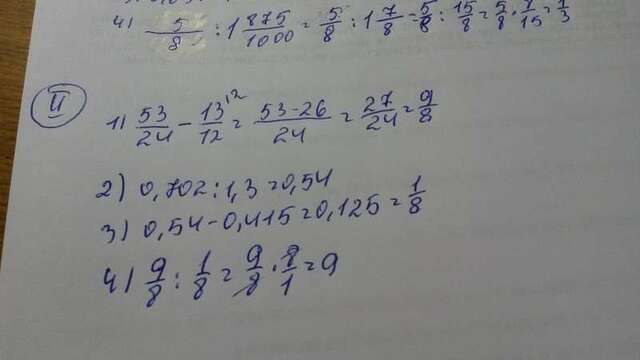 4) 5/8 : 1 875/1000 = 5/8 : 1 7/8 = 5/8 : 15/8 = 5/8 · 1/15 = 1/3
II
1) 53/24 - 13/12 = 53-26/24 = 27/24 = 9/8
2) 0,702 : 1,3 = 0,54
3) 0,54 - 0,415 = 0,125 = 1/8
4) 9/8 : 1/8 = 9/8 · 8/1 = 9